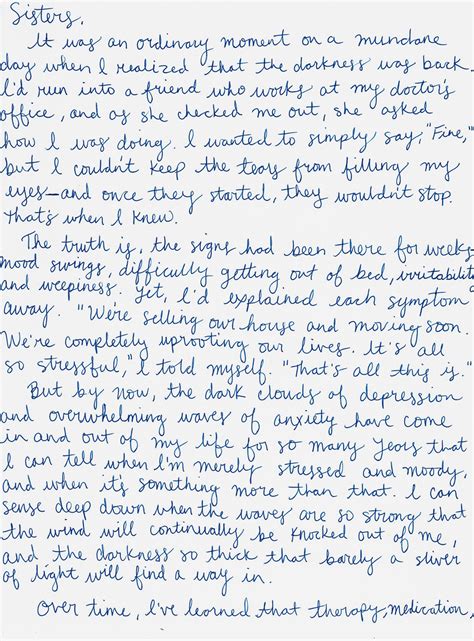 Sisters,
It was an ordinary moment on a mundane
day when I realized that the darkness was back.
I'd run into a friend who works at my doctor's
office, and as she checked me out, she asked
how I was doing. I wanted to simply say, "Fine,"
but I couldn't keep the tears from filling my
eyes—and once they started, they wouldn't stop.
That's when I knew.
The truth is, the signs had been there for weeks—
mood swings, difficulty getting out of bed, irritability
and weepiness. Yet, I'd explained each symptom
away. "We're selling our house and moving soon.
We're completely uprooting our lives. It's all
so stressful," I told myself. "That's all this is."
But by now, the dark clouds of depression
and overwhelming waves of anxiety have come
in and out of my life for so many years that
I can tell when I'm merely stressed and moody,
and when it's something more than that. I can
sense deep down when the waves are so strong that
the wind will continually be knocked out of me,
and the darkness so thick that barely a sliver
of light will find a way in.
Over time, I've learned that therapy, medication,